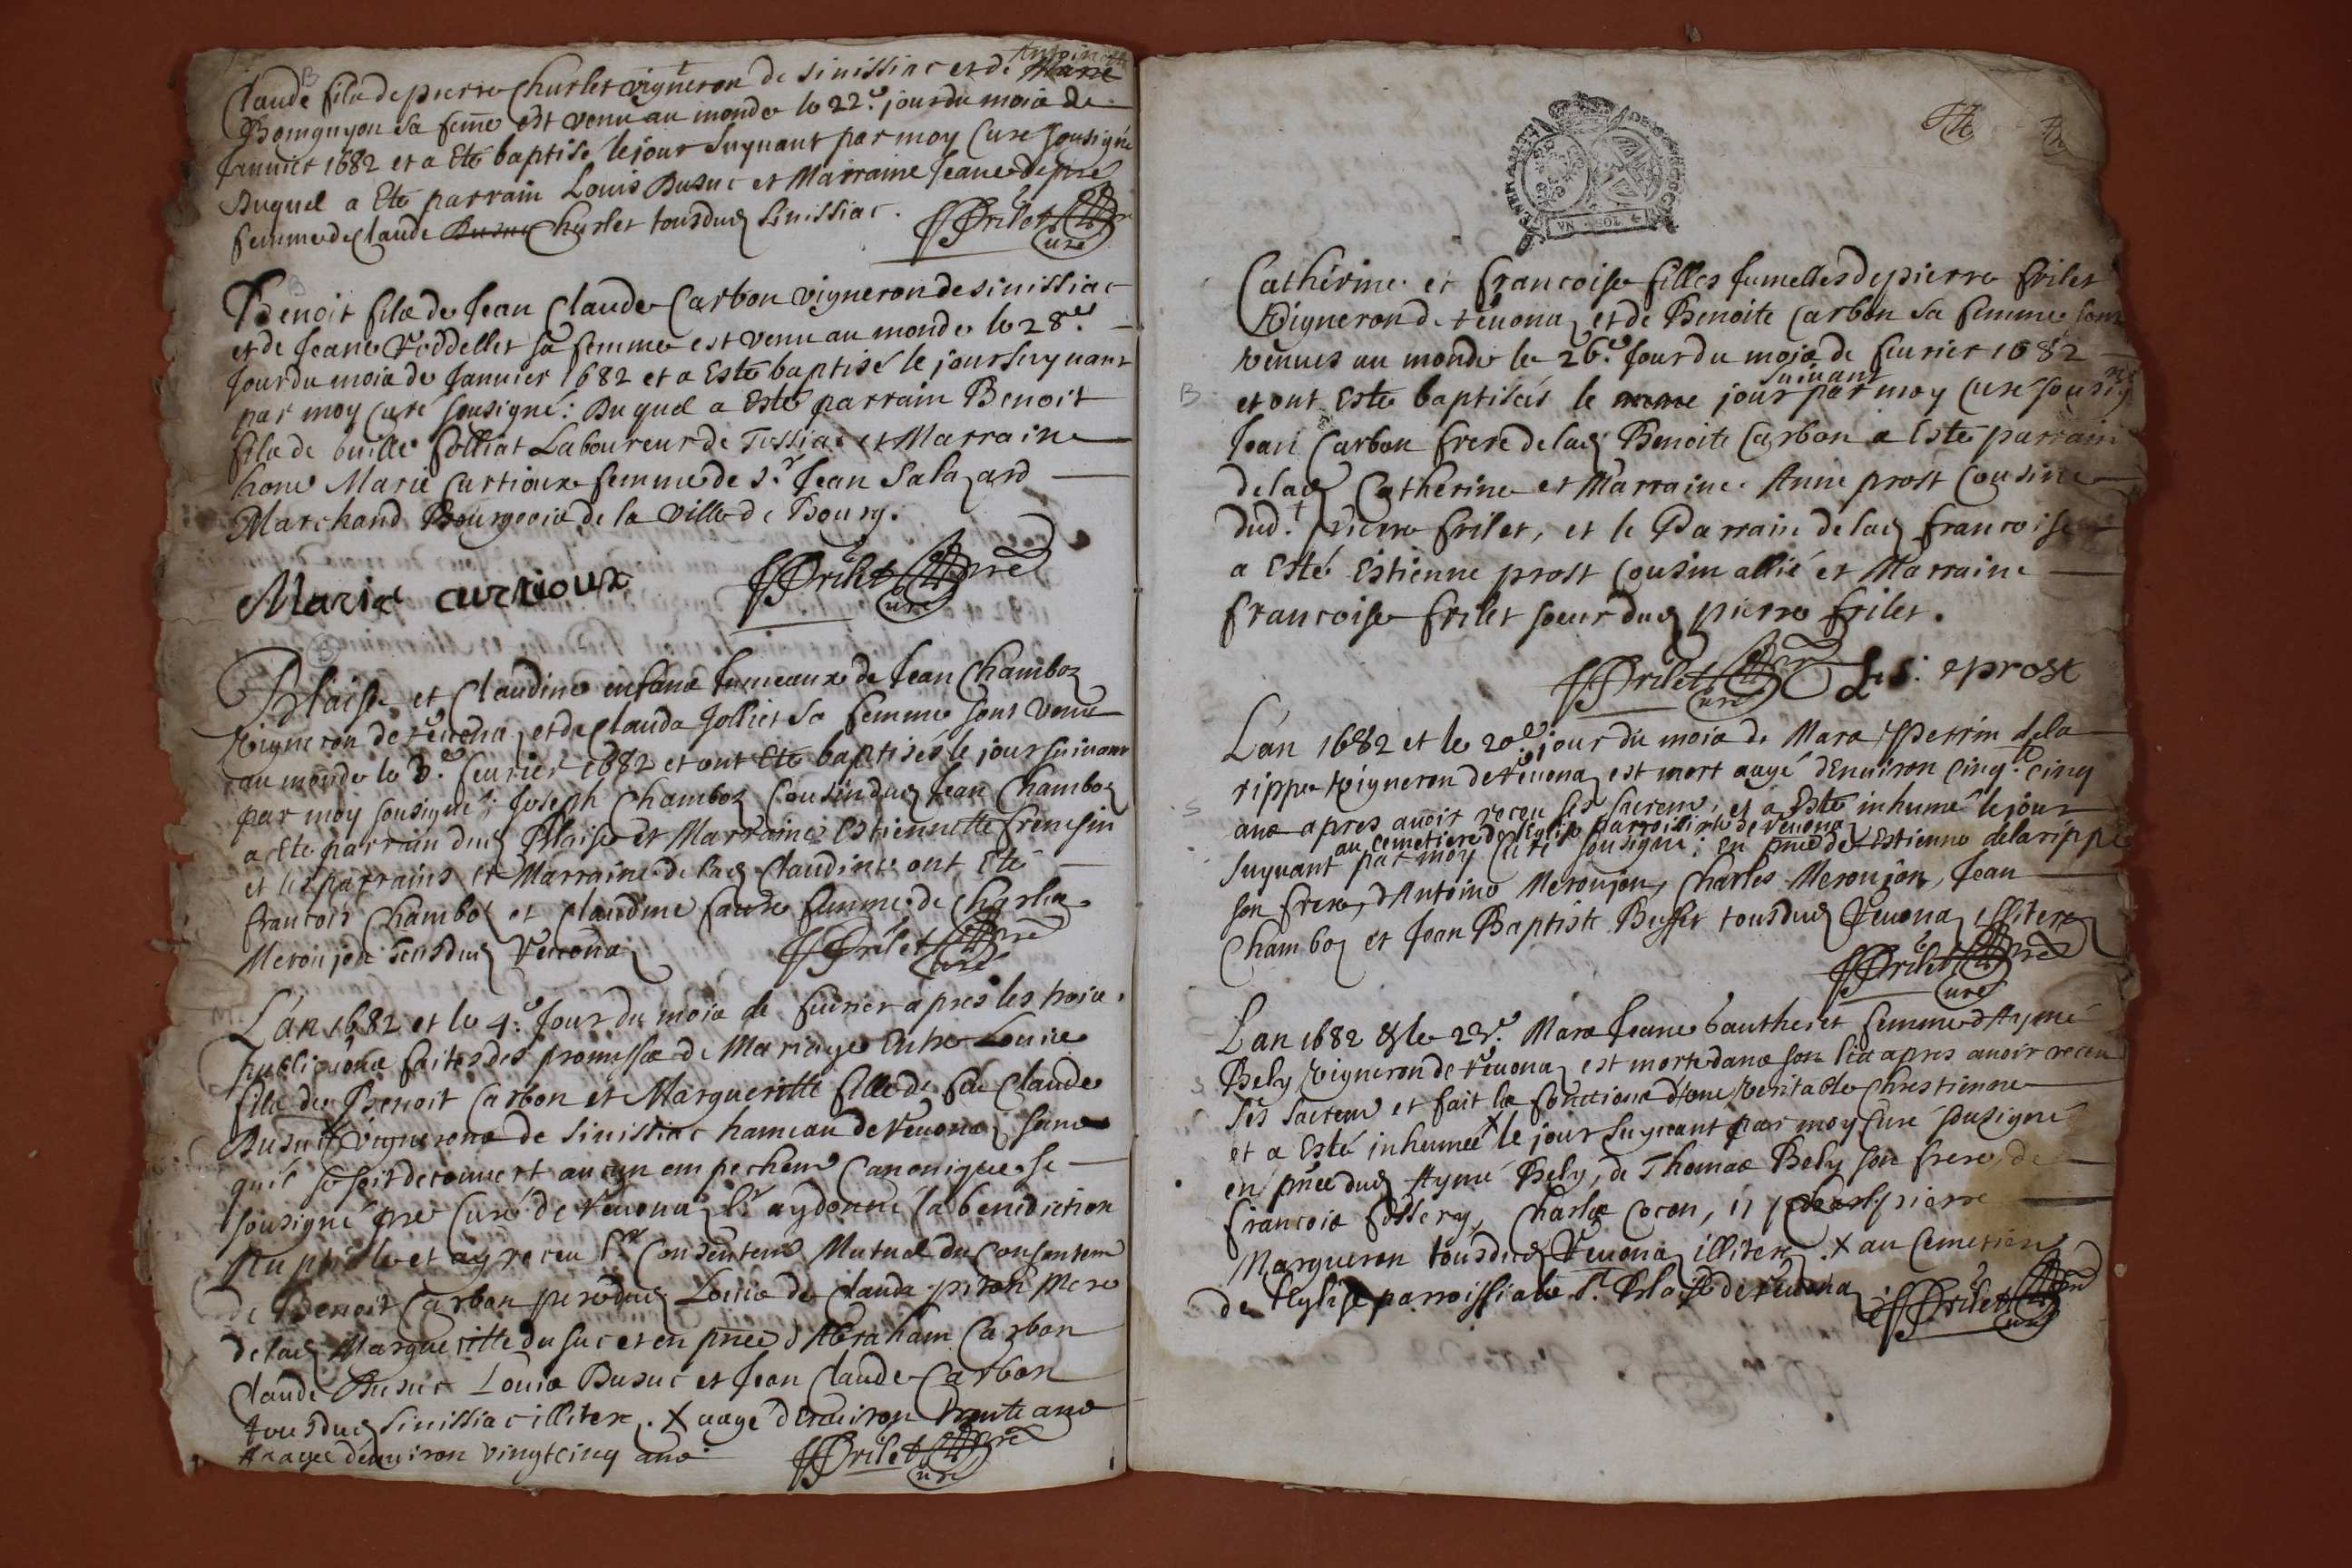 Claude fils de pierre Churlet vigneron de Sinissiac et de Marie Antoinette
Bonguyon sa feme est venu au monde le 22.e jour du mois de
Januier 1682 et a Ete baptisé le jour suyuant par moy Curé sousigné
Duquel a Ete parrain Louis Dusuc et Marraine Jeane depré
femme de Claude Dusuc Churlet tous dud Sinissiac.
Frilet pre
Curé
Benoit fils de Jean Claude Carbon vigneron de sinissiac
et de Jeane Voddellet sa femme est venu au monde le 28.e
Jour du mois de Januier 1682 et a Esté baptisé le jour suyuant
par moy Curé sousigné: Duquel a Esté parrain Benoit
fils de Guille folliat Laboureur de Tossiac et Marraine
hone Marie Curtioux femme de S.r Jean Salazard
Marchand Bourgeois de la ville de Bourg.
Marie curtioux
Frilet pre
Curé
Blaise et Claudine enfans Jumeaux de Jean Chamboz
vigneron de reuona et de Clauda Jolliet sa femme sont venus
au monde le 3.e feurier 1682 et ont Eté baptisés le jour suiuant
par moy sousigné; Joseph Chamboz Cousin dud Jean Chamboz
a Eté parrain dud Blaise et Marraine Estiennette fremsin
et les parrains et Marraine de lad Claudine ont Eté
francois Chamboz et Claudine faure femme de Charles
Meronjon tous dud Reuona
Frilet pre
Curé
L'an 1682 et le 4.e Jour du mois de feurier apres les trois
publiquons faites des promesses de Mariage Entre Louis
fils de Benoit Carbon et Marguerite fille de feu Claude
Dusuc vignerons de Sinissiac hameau de Reuona sans
qu'il se soit decouuert aucun empechem Canonique Je
sousigné pre Curé de Reuona leur ay donné la benediction
Nuptiale et ay receu leur Consentem Mutuel du Consentem
de Benoit Carbon pere dud Louis de Clauda piron Mere
de lad Margueritte du suc et en pnce d'Abraham Carbon
Claude Dusuc Louis Dusuc et Jean Claude Carbon
tous dud Sinissiac illiterez. X aagé d'Enuiron trente ans
# aagée d'enuiron vingt cinq ans
Frilet pre
Curé
Catherine et francoise filles Jumelles de pierre frilet
vigneron de reuona et de Benoite Carbon sa femme sont
venues au monde le 26.e Jour du mois de feurier 1682
et ont Esté baptisées le meme jour suiuant par moy Curé sousigné
Jean Carbon frere de lad Benoite Carbon a Esté parrain
de lad Catherine et Marraine Anne prost Cousine
dud. pierre frilet, et le Parrain de lad francoise
a Esté Estienne prost Cousin allié et Marraine
francoise frilet soeur dud pierre frilet.
Frilet pre
Curé
e prost
L'an 1682 et le 20.e jour du mois de Mars Perrin dela
rippe vigneron de reuona est mort aagé d'Enuiron Cinqte Cinq
ans apres auoir receu ses sacrem. et a Esté inhumé le jour
au Cemetiere de l'Eglise parroissiale de reuona
suyuant par moy Curé sousigné: en pnce de Estienne delarippe
son frere, d'Antoine Meronjon, Charles Meronjon, Jean
Chamboz et Jean Baptiste Buffet tous dud Reuona illiterez
Frilet pre
Curé
L'an 1682 & le 22.e Mars Jeane Gautheret femme d'Aymé
Bely vigneron de reuona est morte dans son lit apres auoir receu
ses sacrem et fait les fonctions d'une veritable Chrestienne
et a Esté inhumée X le jour suyuant par moy Curé sousigné
en pnce dud Aymé Bely, de Thomas Bely son frere, de
francois Fossery, Charles Cocon, pierre
Margueron tous dud Reuona illiterez. X au Cemetiere
de l'Eglise parroissiale St. Blaise de reuona
Frilet pre
Curé